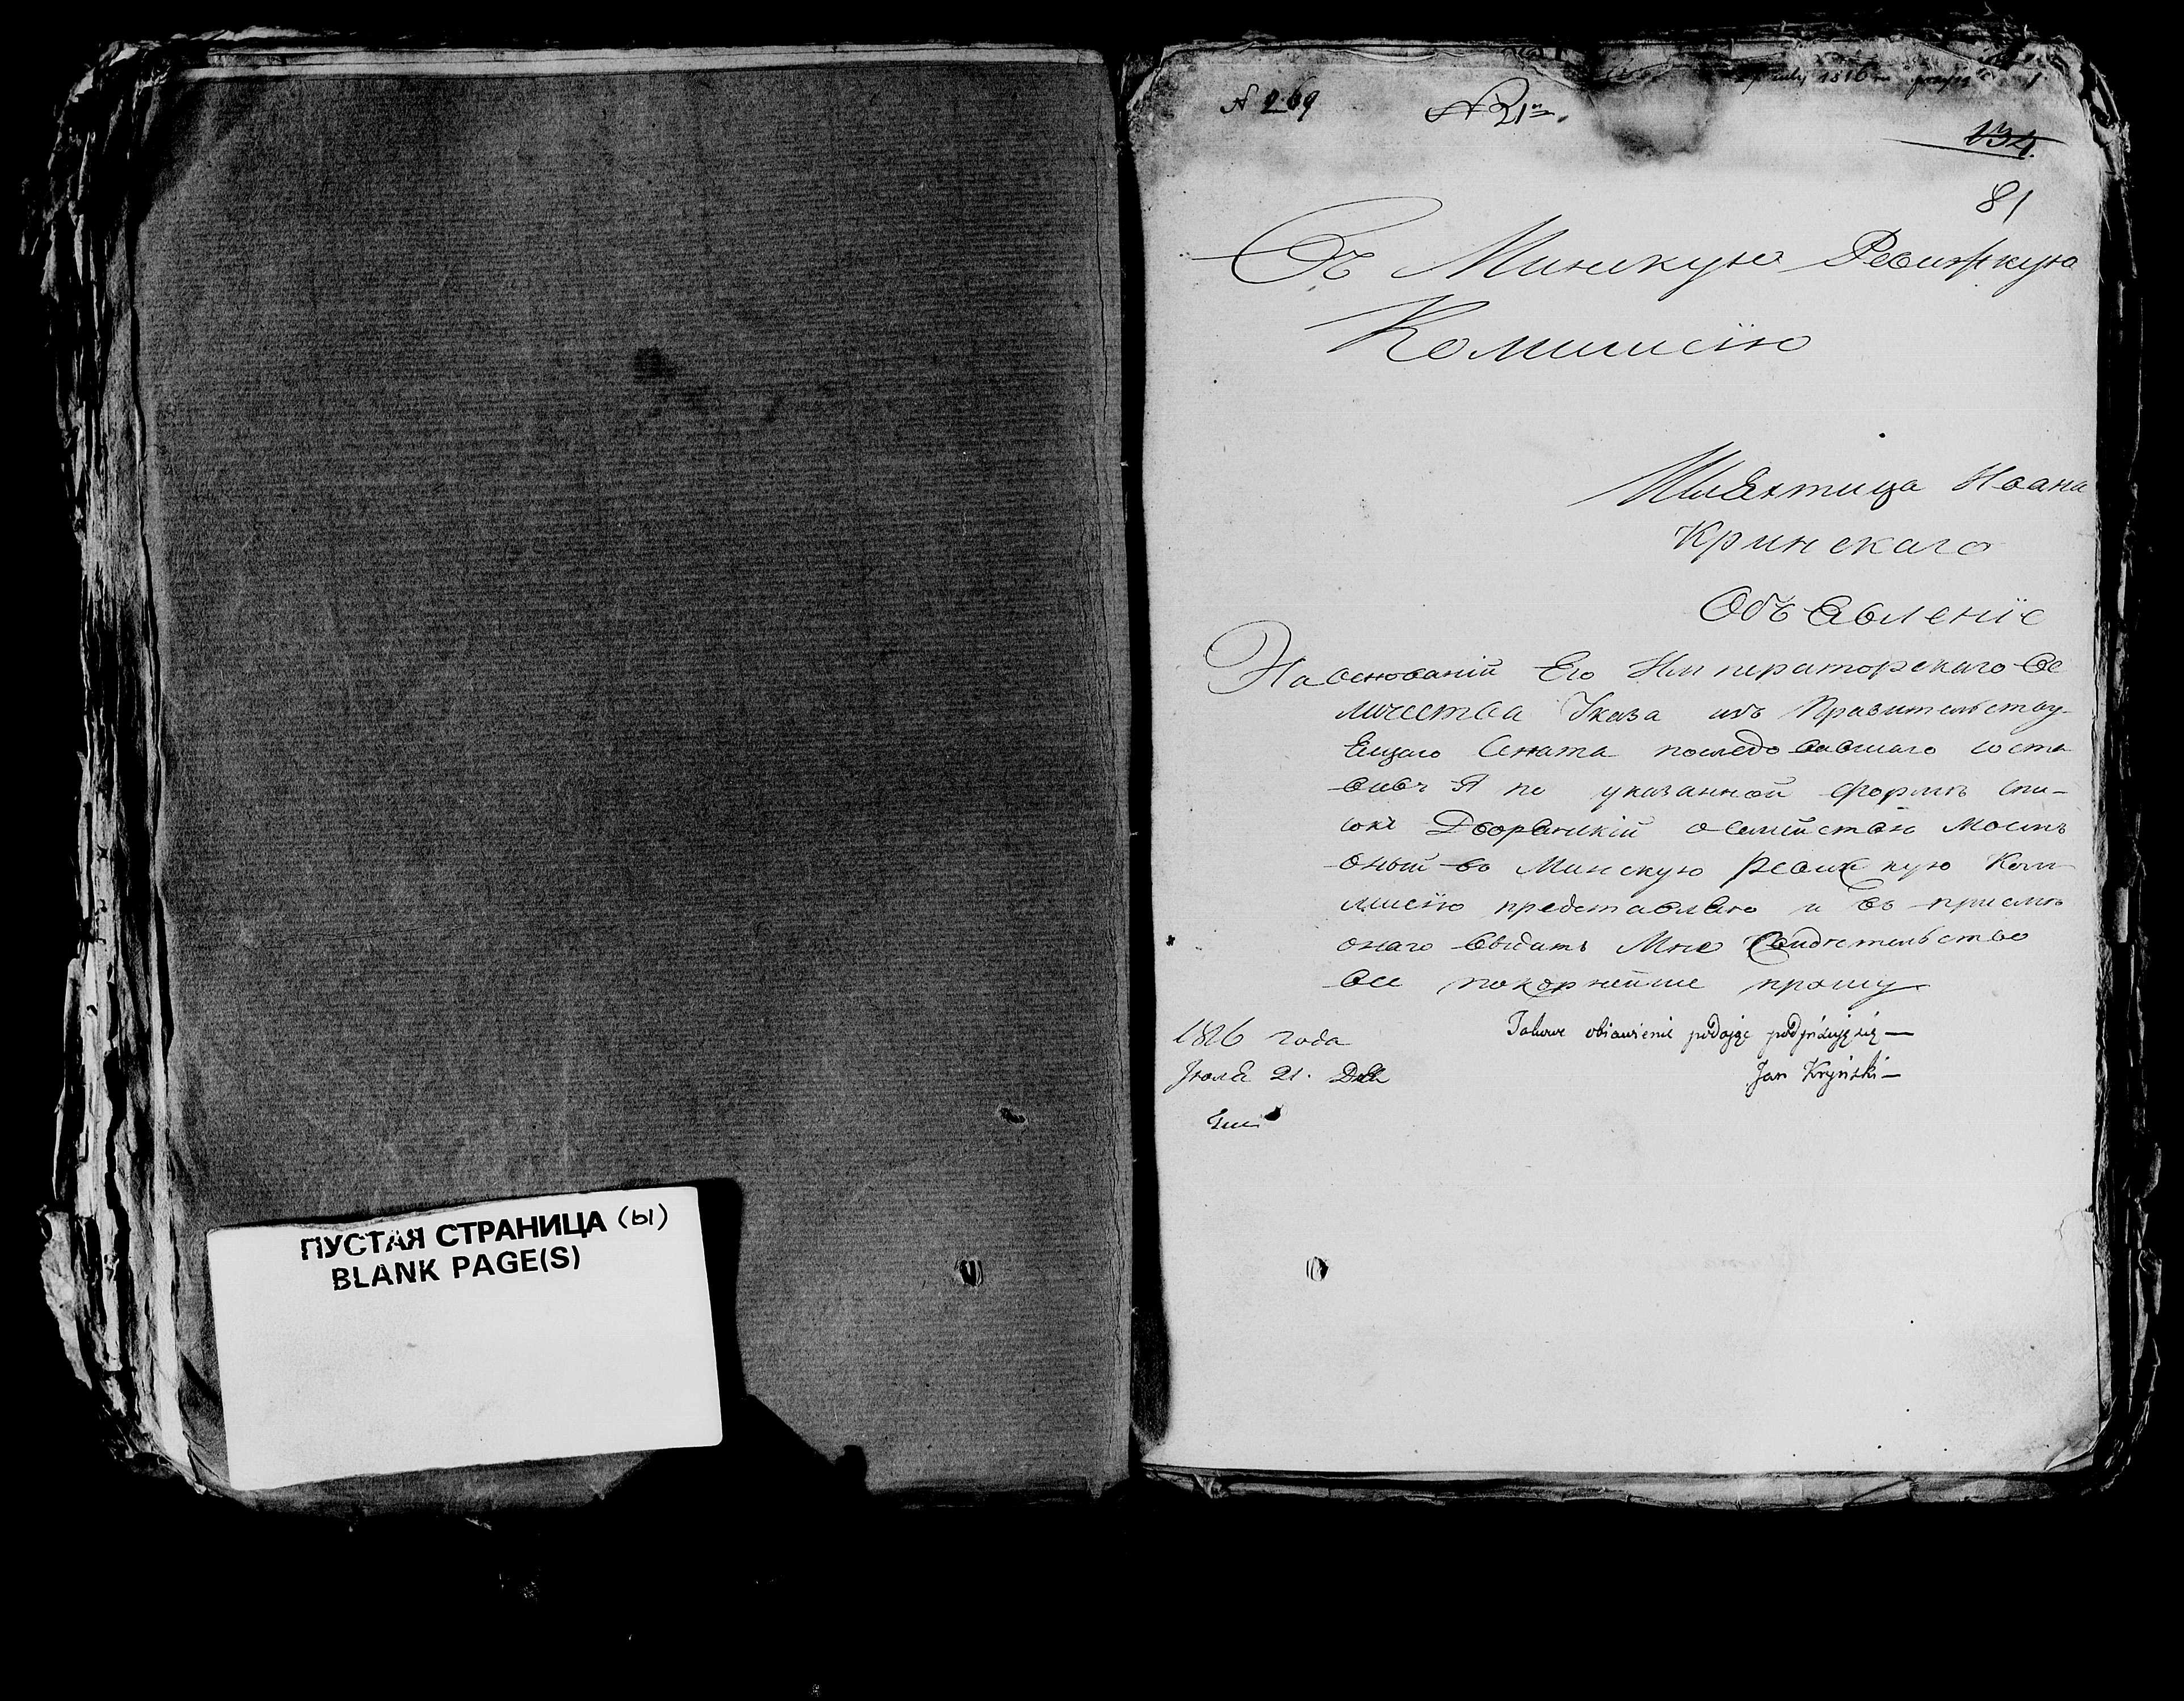 ПУСТАЯ СТРАНИЦА (ы)
BLANK PAGE(S)
№ 269
july 1816
134.
81
Въ Минскую Ревижскую
Коммисїю
Шляхтица Ивана
Кринскаго
Объявленїе
На основанїй Его Императорскаго Ве
личества Указа изъ Правительству-
ющаго Сената последовавшаго соста
вивъ я по указанной формѣ спи-
сокъ Дворянскїй о семействѣ моемъ
оный въ Минскую Ревижскую Ком
мисїю представляю и въ приемѣ
онаго выдать Мне Свидѣтельство
все покорнейше прошу
1816 года
Июля 21. Дня
Takowe obiawienie podając podpisuję się —
Jan Kryński —